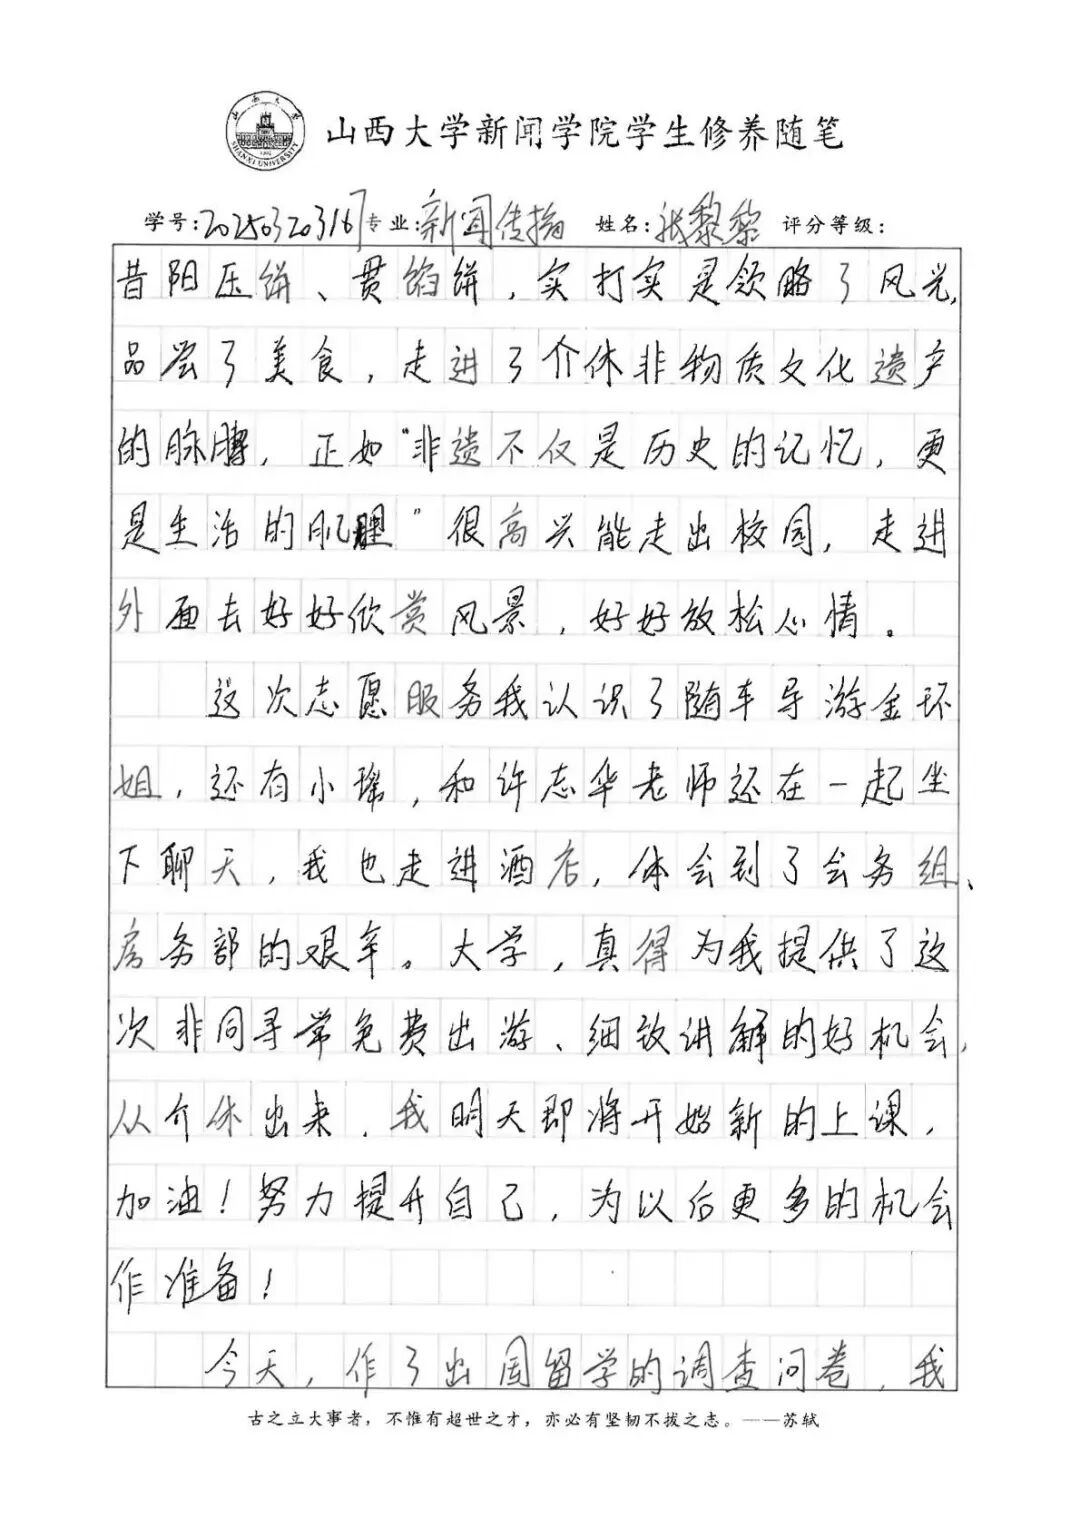 山西大学新闻学院学生修养随笔
学号:202503203167 专业:新闻传播 姓名:张黎黎 评分等级:
昔阳压饼、贯馅饼，实打实是领略了风光，
品尝了美食，走进了介休非物质文化遗产
的脉搏，正如“非遗不仅是历史的记忆，更
是生活的肌理”很高兴能走出校园，走进
外面去好好欣赏风景，好好放松心情。
这次志愿服务我认识了随车导游金环
姐，还有小瑞，和许志华老师还在一起坐
下聊天，我也走进酒店，体会到了会务组、
房务部的艰辛。大学，真得为我提供了这
次非同寻常免费出游、细致讲解的好机会，
从介休出来，我明天即将开始新的上课，
加油！努力提升自己，为以后更多的机会
作准备！
今天，作了出国留学的调查问卷，我
古之立大事者，不惟有超世之才，亦必有坚韧不拔之志。——苏轼